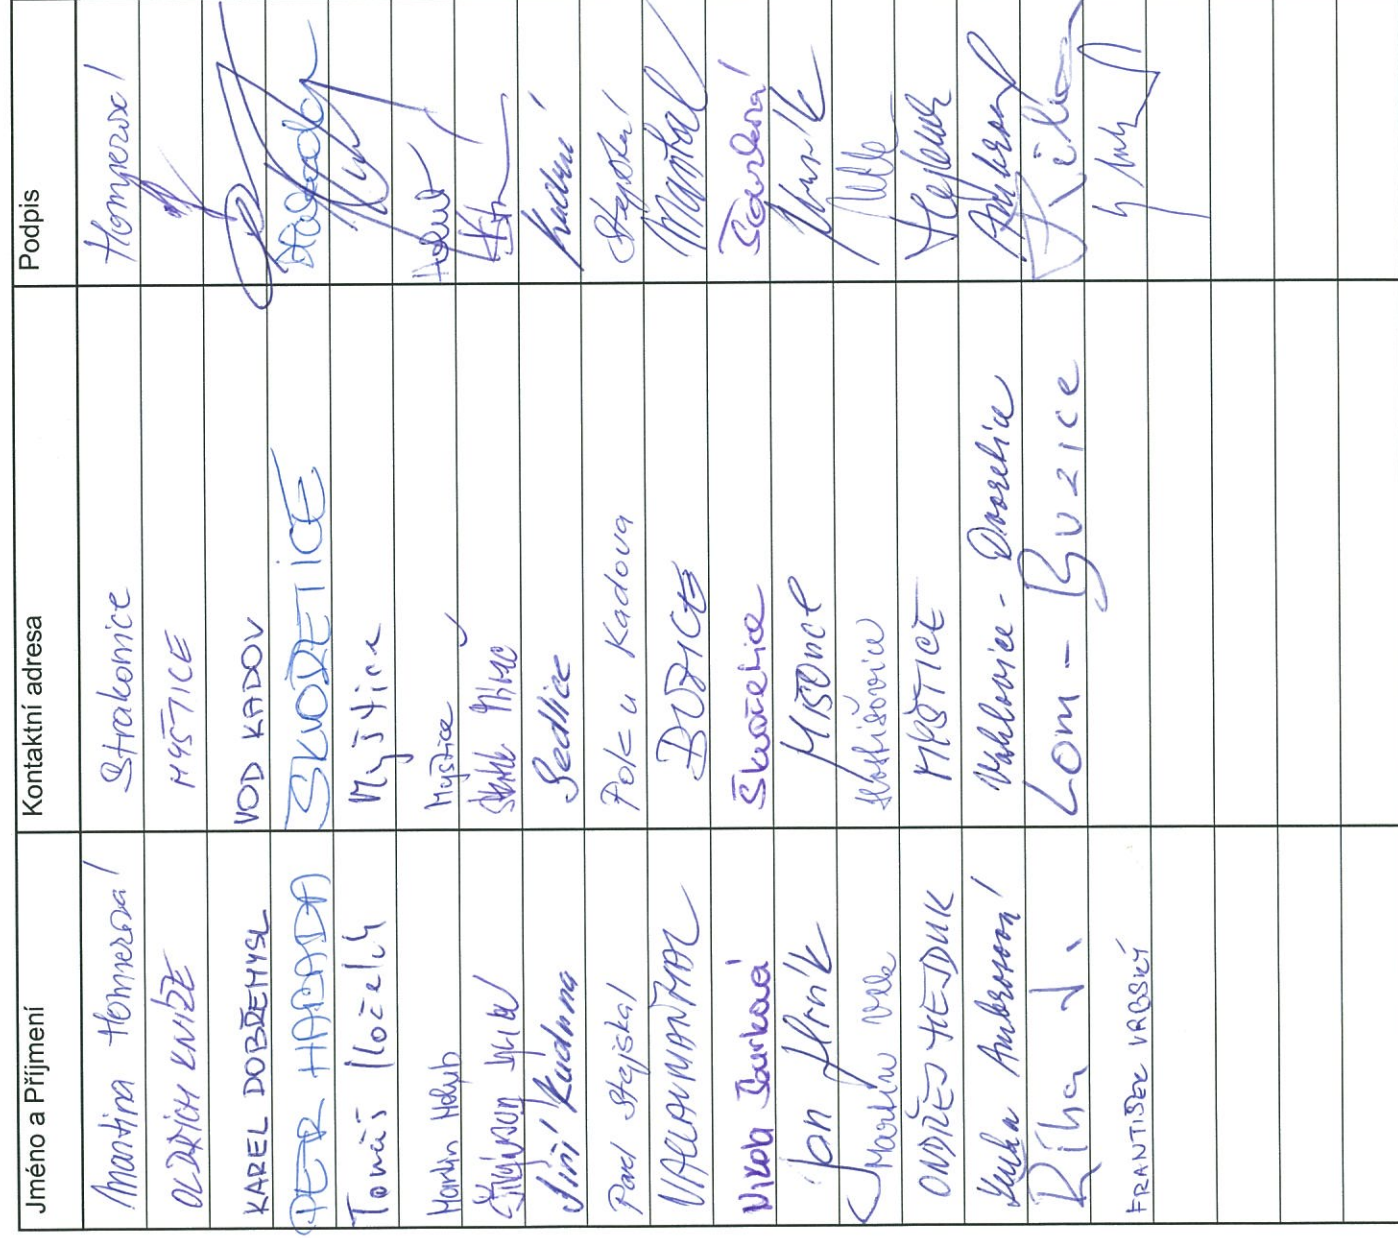 Jméno a Příjmení Kontaktní adresa Podpis
Martina Homerová Strakonice Homerová
OLDŘICH KNÍŽE MYŠTICE
KAREL DOBŘEMYSL VOD KADOV
PETR HABADA ŠKVOŘETICE Habada
Tomáš Myštice
Martin Holub Myštice Holub
Jiří Kudrna Sedlice Kudrna
Pavel Stejskal Pole u Kadova Stejskal
VÁCLAV MAŇHAL BUZICE Maňhal
Nikola Škvořetice
Jan Hrník
Martin Hostišovice
ONDŘEJ HEJDUK MYŠTICE Hejduk
Ambrosová Vahlovice - Dvoretice
Říha J. Lom - BUZICE Říha
FRANTIŠEK VRBSKÝ